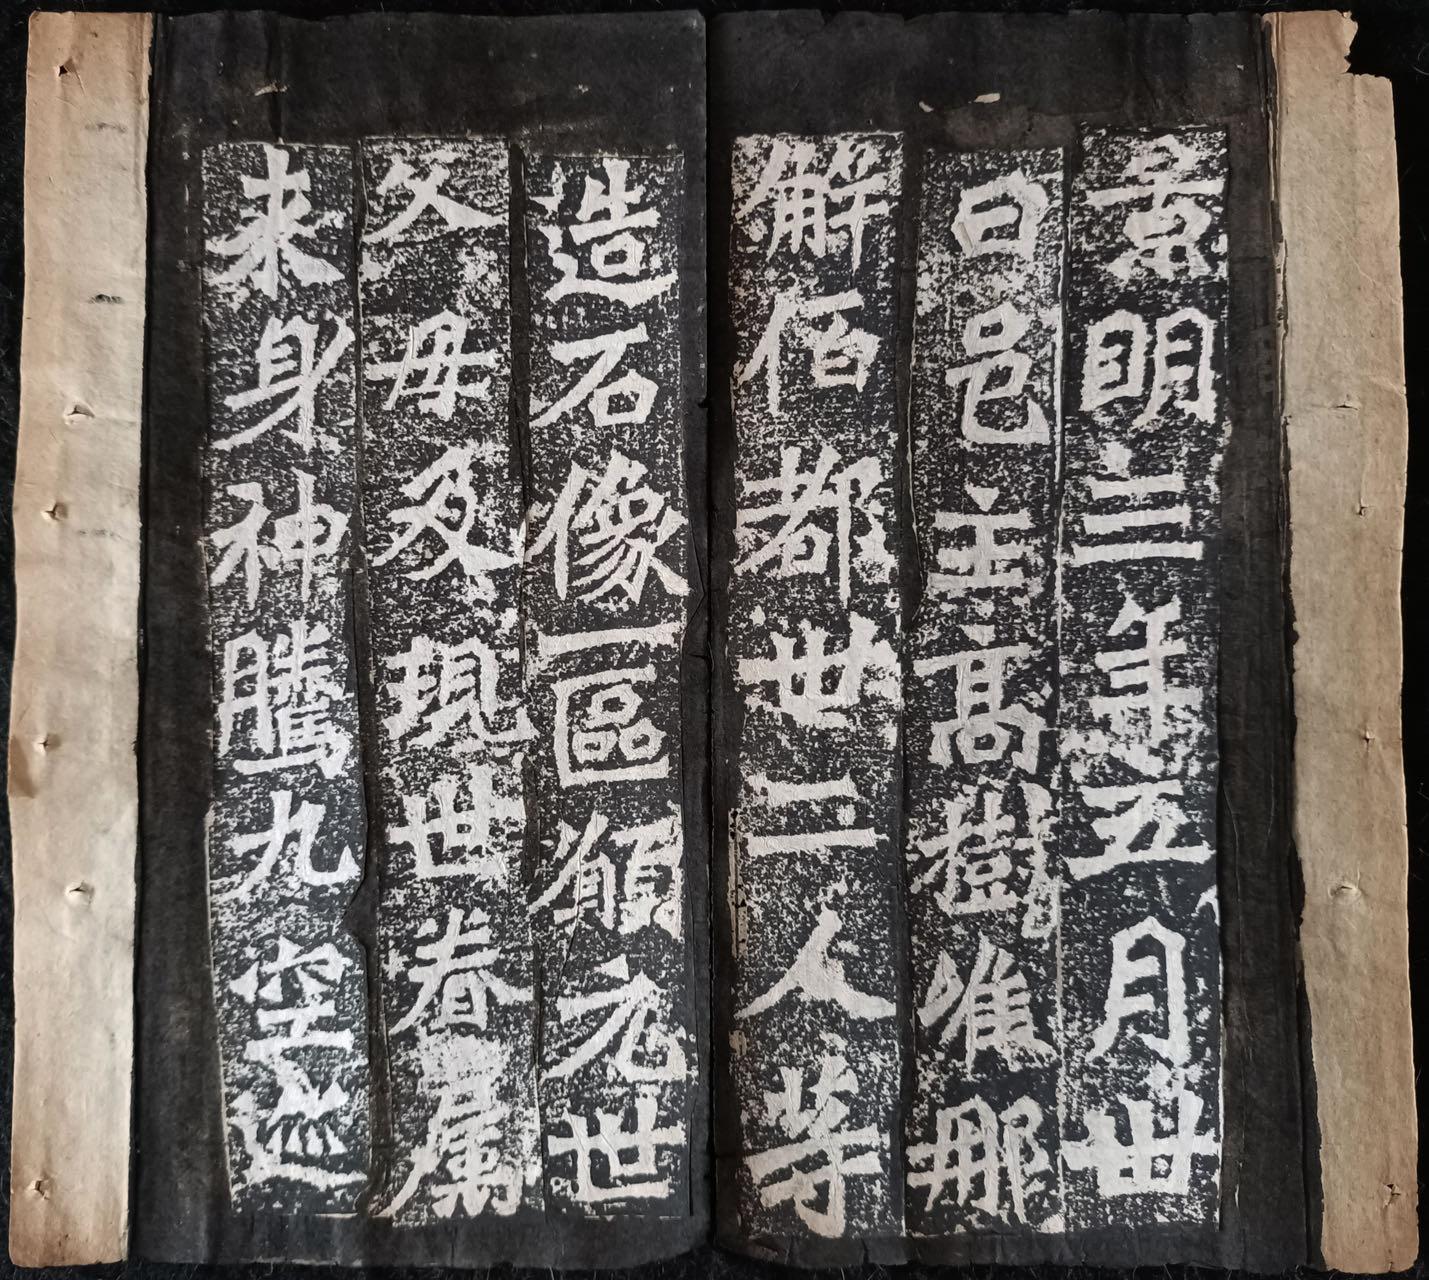 景明三年五月卅
日邑主高樹唯那
解佰都卅二人等
造石像一區願元世
父母及現世眷屬
来身神騰九空迹